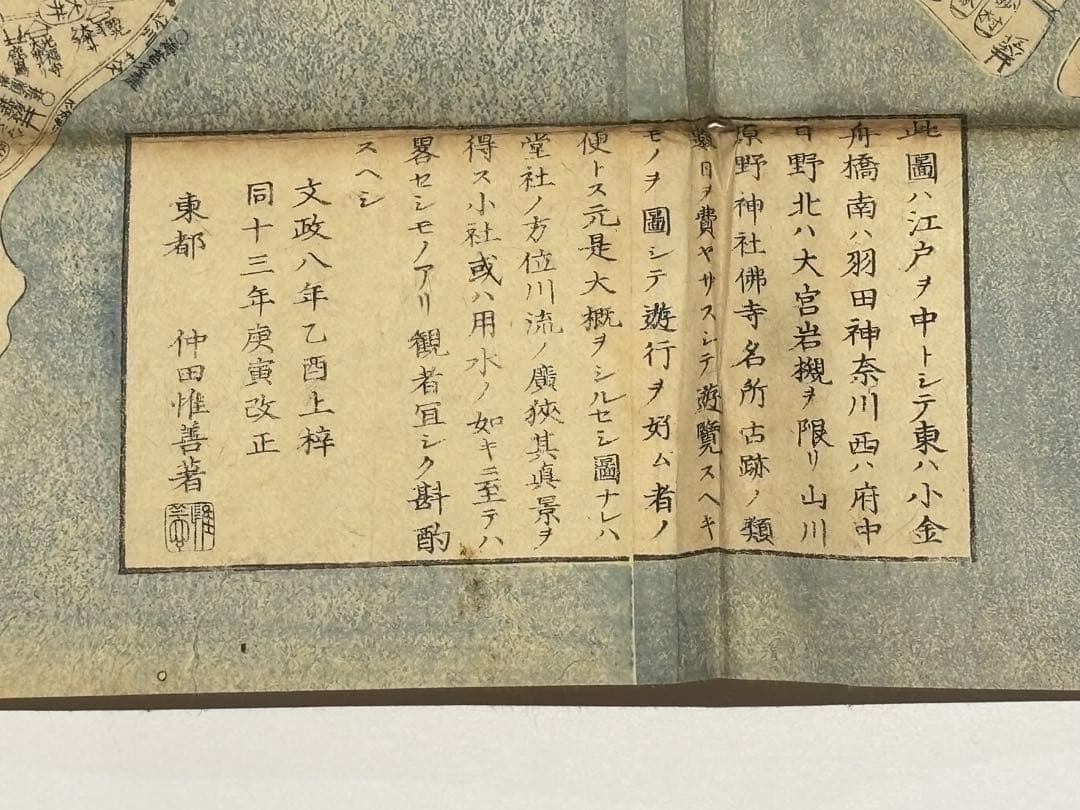 此圖ハ江戸ヲ中トシテ東ハ小金
舟橋南ハ羽田神奈川西ハ府中
日野北ハ大宮岩槻ヲ限リ山川
原野神社佛寺名所古跡ノ類
日ヲ費ヤサスシテ遊覽スヘキ
モノヲ圖シテ遊行ヲ好ム者ノ
便トス元是大概ヲシルセシ圖ナレハ
堂社ノ方位川流ノ廣狹其真景ヲ
得ス小社或ハ用水ノ如キニ至テハ
畧セシモノアリ観者冝シク斟酌
スヘシ
文政八年乙酉上梓
同十三年庚寅改正
東都 仲田惟善著